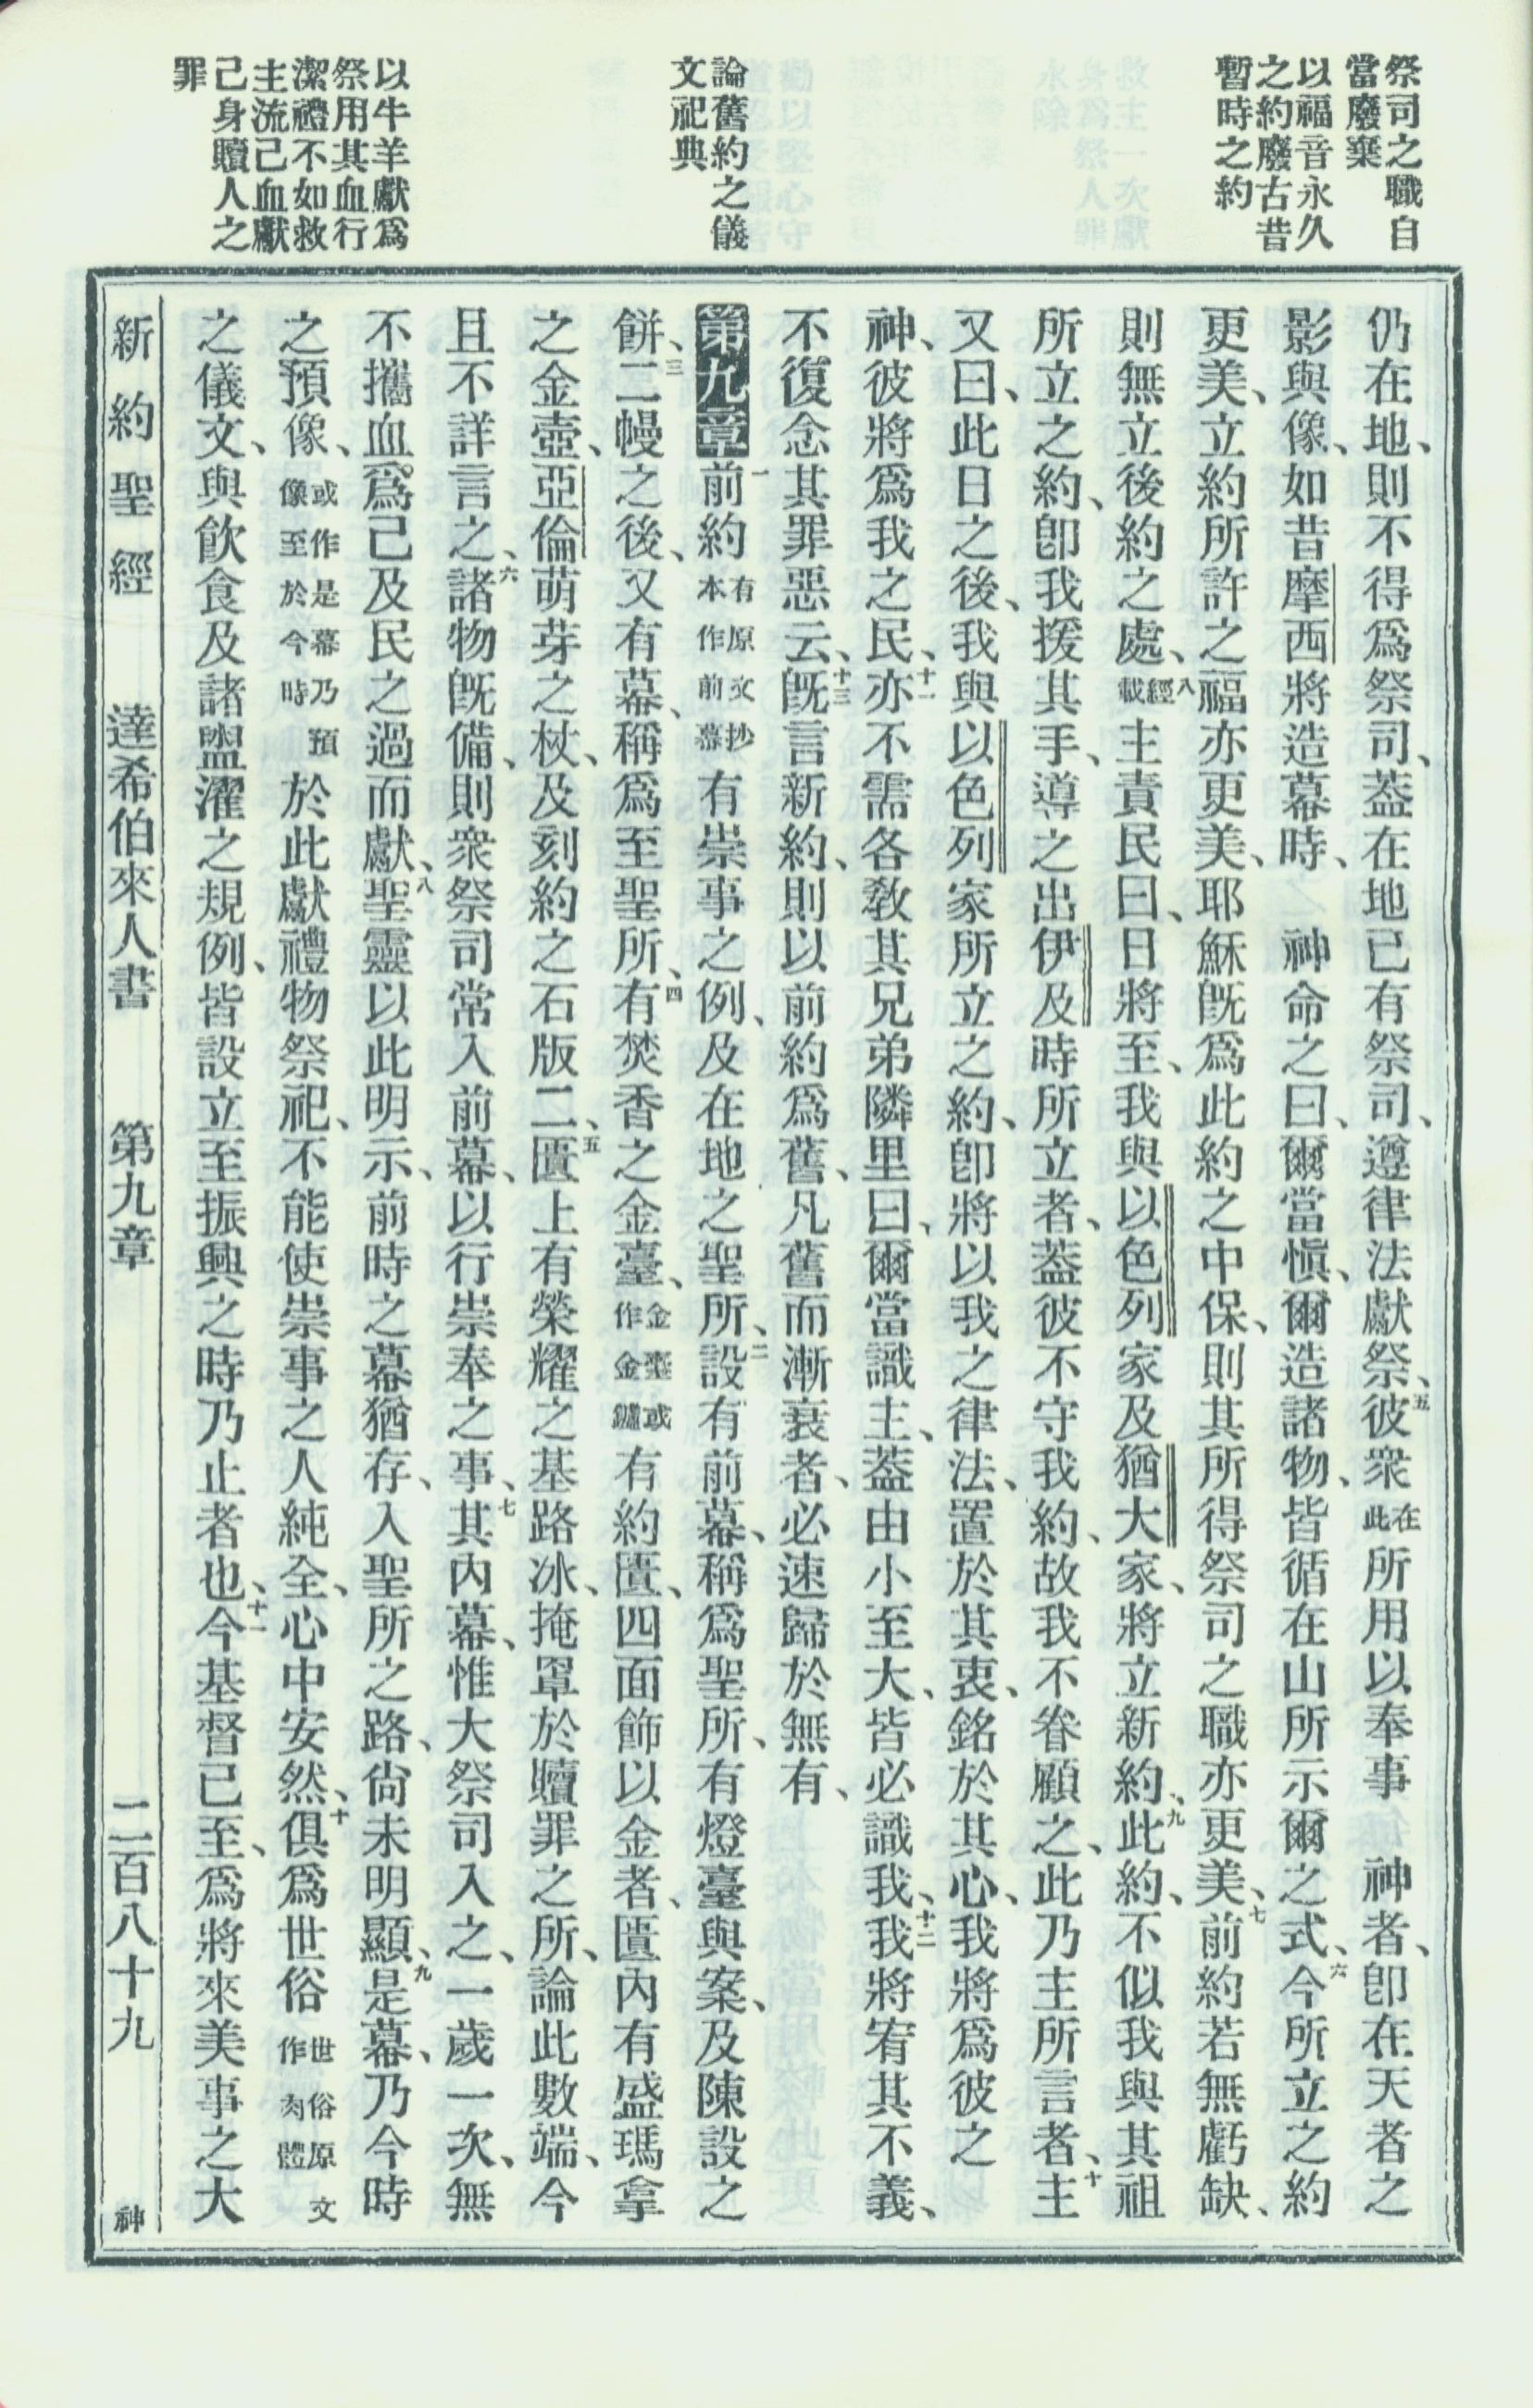 祭司之職自
當廢棄
以福音永久
之約廢古昔
暫時之約
論舊約之儀
文祀典
以牛羊獻爲
祭用其血行
潔禮不如救
主流己血獻
己身贖人之
罪
仍在地、則不得爲祭司、蓋在地已有祭司、遵律法獻祭、五彼衆在此所用以奉事　神者、卽在天者之
影與像、如昔摩西將造幕時、　神命之曰、爾當愼、爾造諸物、皆循在山所示爾之式、六今所立之約
更美、立約所許之福亦更美、耶穌旣爲此約之中保、則其所得祭司之職亦更美、七前約若無虧缺、
則無立後約之處、八經載主責民曰、日將至、我與以色列家及猶大家、將立新約、九此約、不似我與其祖
所立之約、卽我援其手、導之出伊及時所立者、蓋彼不守我約、故我不眷顧之、此乃主所言者、十主
又曰、此日之後、我與以色列家所立之約、卽將以我之律法、置於其衷、銘於其心、我將爲彼之
神、彼將爲我之民、十一亦不需各教其兄弟隣里曰、爾當識主、蓋由小至大、皆必識我、十二我將宥其不義、
不復念其罪惡云、十三旣言新約、則以前約爲舊、凡舊而漸衰者、必速歸於無有、
第九章　一前約有原文抄本作前幕有崇事之例、及在地之聖所、二設有前幕、稱爲聖所、有燈臺與案、及陳設之
餅、三二幔之後、又有幕、稱爲至聖所、四有焚香之金臺、金臺或作金鑪有約匱、四面飾以金者、匱內有盛瑪拿
之金壺、亞倫萌芽之杖、及刻約之石版二、五匱上有榮耀之基路冰、掩罩於贖罪之所、論此數端、今
且不詳言之、六諸物旣備、則衆祭司常入前幕、以行崇奉之事、七其內幕、惟大祭司入之、一歲一次、無
不攜血爲己及民之過而獻、八聖靈以此明示、前時之幕猶存、入聖所之路、尙未明顯、九是幕、乃今時
之預像、或作是幕乃預像至於今時於此獻禮物祭祀、不能使崇事之人純全、心中安然、十俱爲世俗世俗原文作肉體
之儀文、與飲食及諸盥濯之規例、皆設立至振興之時乃止者也、十一今基督已至、爲將來美事之大
新約聖經　達希伯來人書　第九章　二百八十九　神